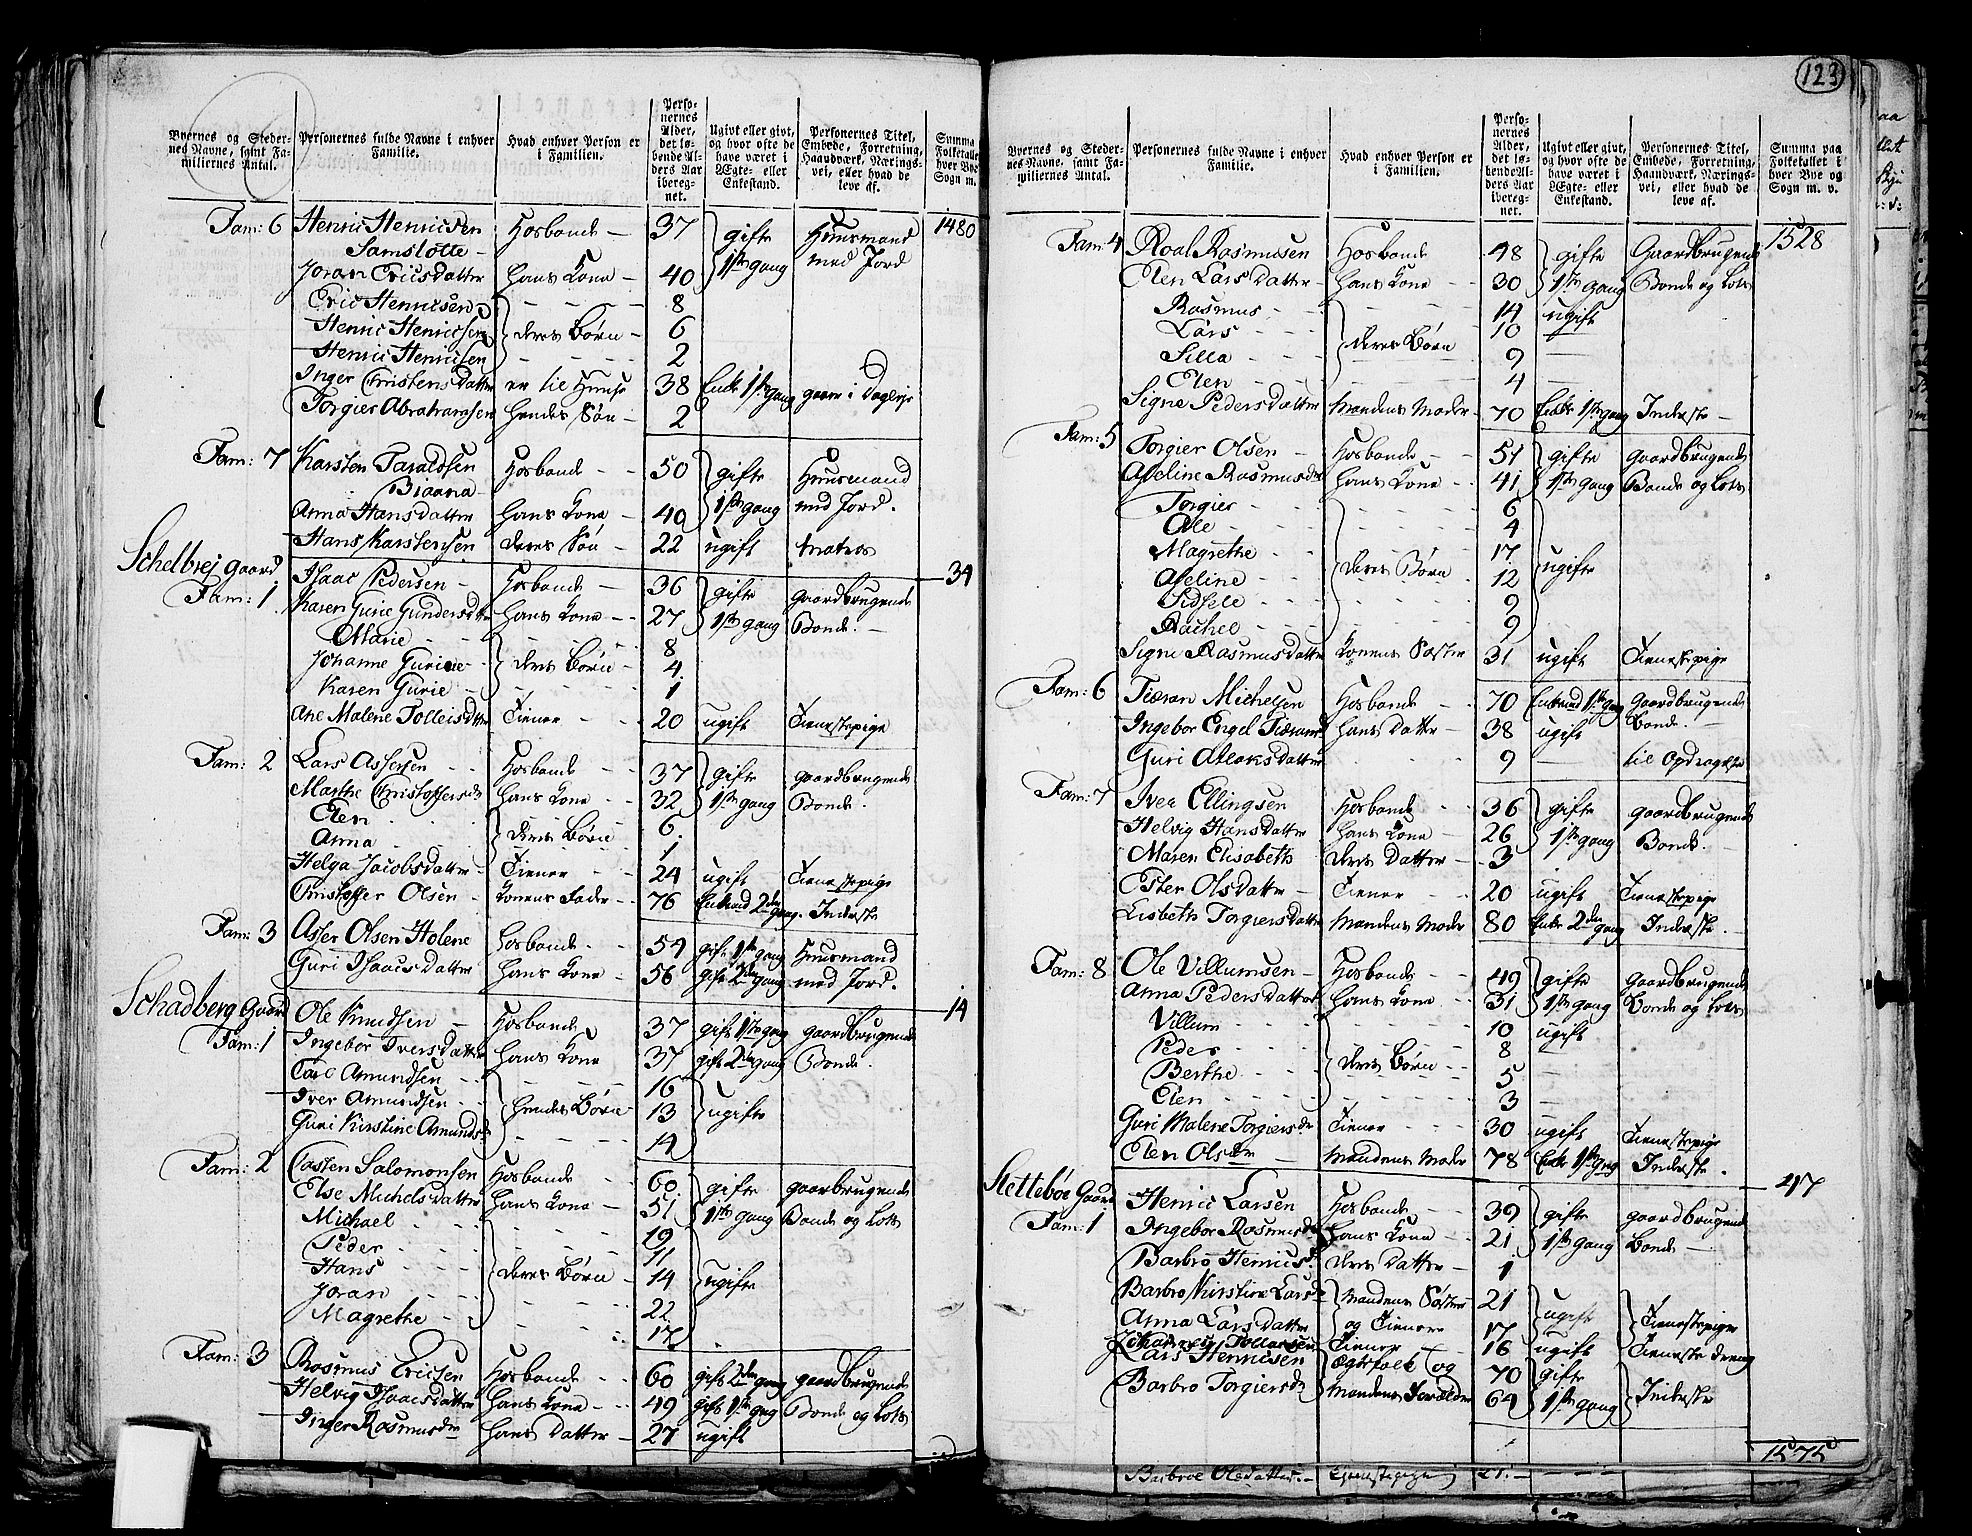 Byernes og Steder-
nes Navne, samt Fa-
miliernes Antal.
Personernes fulde Navne i enhver
Familie.
Hvad enhver Person er
i Familien.
Perso-
nernes
Alder,
det lø-
bende Al-
ders Aar
iberegn-
net.
Ugivt eller givt,
og hvor ofte de
have været i
Ægte- eller
Enkestand.
Personernes Titel,
Embede, Forretning,
Haandværk, Nærings-
vei, eller hvad de
leve af.
Summa
Folketallet
hver Bye
Sogn m.
1480
Fam: 6 Henric Henricsen Hosbonde 37 gifte Huusmand
Samslotte
Joran Ericsdatter hans Kone 40 1ste gang med Jord
Eric Henricsen 8
Henric Henricsen deres Børn 6
Henric Henricsen 2
Inger Christensdatter er til Huuse 38 Enke 1ste gang gaaer i Dagleje
Torgier Abrahamsen hendes Søn 2
Fam: 7 Karsten Taraldsen Hosbonde 50 gifte Huusmand
Biaana
Anna Hansdatter hans Kone 40 1ste gang med Jord.
Hans Karstensen deres Søn 22 ugift Matros
Schelbrej Gaard 34
Fam: 1 Isaac Pedersen Hosbonde 36 gifte gaardbrugende
Karen Gurie Gundersdtr hans Kone 27 1ste gang Bonde.
Marie 8
Johanne Gurine deres Børn 4
Karen Gurie 1
Ane Malene Tolleisdtr Tiener 20 ugift Tienestepige
Fam: 2 Lars Assersen Hosbonde 37 gifte gaardbrugende
Marthe Christoffersdr hans Kone 32 1ste gang Bonde.
Elen 6
Anna deres Børn 1
Helga Jacobsdatter Tiener 24 ugift Tienestepige
Christoffer Olsen Konens Fader 76 Enkemd 2den gang. Inderste
Fam: 3 Asser Olsen Holene Hosbonde 54 gift 1ste gang Huusmand
Guri Isaacsdatter hans Kone 56 gift 2den gang med Jord.
Schadberg Gaard 14
Fam: 1 Ole Knudsen Hosbonde 37 gift 1ste gang gaardbrugende
Ingebor Iversdatter hans Kone 37 gift 2den gang Bonde.
Carl Amundsen 16
Iver Amundsen hendes Børn 13 ugifte
Guri Kirstine Amundsdr 14
Fam: 2 Casten Salomonsen Hosbonde 60 gifte gaardbrugende
Else Michelsdatter hans Kone 51 1ste gang Bonde og Lots
Michael 19
Peder 11
Hans deres Børn 14 ugifte
Joran 22
Magrethe 17
Fam: 3 Rasmus Ericsen Hosbonde 60 gift 2den gang gaardbrugende
Helvig Isaacsdatter hans Kone 49 gift 1ste gang Bonde og Lots
Inger Rasmusdr hans Datter 27 ugift
123
Byernes og Steder-
nes Navne, samt Fa-
miliernes Antal.
Personernes fulde Navne i enhver
Familie.
Hvad enhver Person er
i Familien.
Perso-
nernes
Alder,
det lø-
bende Al-
ders Aar
iberegn-
net.
Ugivt eller givt,
og hvor ofte de
have været i
Ægte- eller
Enkestand.
Personernes Titel,
Embede, Forretning,
Haandværk, Nærings-
vei, eller hvad de
leve af.
Summa paa
Folketallet i
hver Bye og
Sogn m. v.
1528
Fam: 4 Roal Rasmussen Hosbonde 48 gifte Gaardbrugende
Elen Larsdatter hans Kone 30 1ste gang Bonde og Lots
Rasmus 14 ugift
Lars 10
Silla deres Børn 9
Elen 4
Signe Pedersdatter Mandens Moder 70 Enke 1ste gang Inderste
Fam: 5 Torgier Olsen Hosbonde 51 gifte gaardbrugende
Aseline Rasmusdr hans Kone 41 1ste gang Bonde og Lots
Torgier 6
Ole 4
Magrethe 17
Aseline deres Børn 12 ugifte
Sidsele 9
Rachel 9
Signe Rasmusdatter Konens Søster 31 ugift Tienestepige
Fam: 6 Tieran Michelsen Hosbonde 70 Enkemd 1ste gang Gaardbrugende
Ingebor Engel Tieransd hans Datter 38 ugift Bonde.
Guri Atlaksdatter 9 til Opdragelse
Fam: 7 Iver Ellingsen Hosbonde 36 gifte gaardbrugende
Helvig Hansdatter hans Kone 26 1ste gang Bonde.
Maren Elisabeth deres Datter 3
Ester Olsdatter Tiener 20 ugift Tienestepige
Lisbeth Torgiersdatter Mandens Moder 80 Enke 2den gang Inderste.
Fam: 8 Ole Villumsen Hosbonde 49 gifte Gaardbrugende
Anna Pedersdatter hans Kone 31 1ste gang Bonde og Lots
Villum 10 ugift
Peder 8
Berthe deres Børn 5
Elen 3
Guri Malene Torgiersdr Tiener 30 ugift Tienestepige
Elen Olsdr Mandens Moder 78 Enke 1ste gang Inderste.
Stettebøe Gaard 47
Fam: 1 Henric Larsen Hosbonde 39 gifte gaardbrugende
Ingebor Rasmusdr hans Kone 21 1ste gang Bonde
Barbro Henricsd. deres Datter 1
Barbro Kirstine Larsdr Mandens Søstre 21 ugift Tienestepiger
Anna Larsdatter og Tienere 17
Johannes Tollaksen Tiener 16 ugift Tieneste dreng
Lars Henricsen Ægtefolk og 70 gifte
Barbro Torgiersdr Mandens Forældre 69 1ste gang Inderste
1575
Barbroe Olsdatter Tjenestepige 21